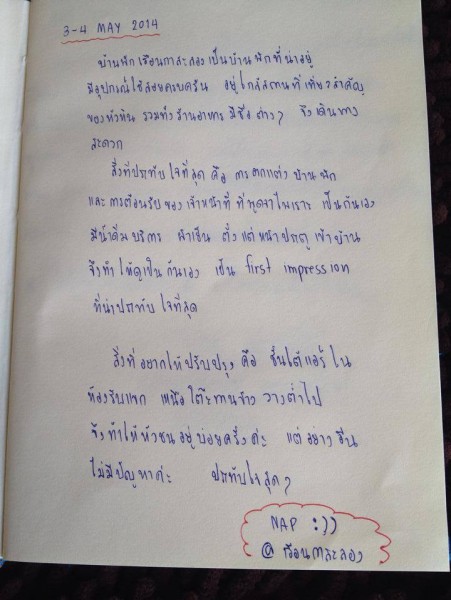 3-4 MAY 2014
บ้านพักเรือนกาสะลองเป็นบ้านพักที่น่าอยู่
มีอุปกรณ์ใช้สอยครบครัน อยู่ใกล้สถานที่เที่ยวสำคัญ
ของหัวหิน รวมทั้งร้านอาหาร มีชื่อต่างๆ จึงเดินทาง
สะดวก
สิ่งที่ประทับใจที่สุด คือ การตกแต่งบ้านพัก
และการต้อนรับของเจ้าหน้าที่ ที่พูดจาไพเราะ เป็นกันเอง
มีน้ำดื่มบริการ ผ้าเย็น ตั้งแต่หน้าประตูเข้าบ้าน
จึงทำให้ดูเป็นกันเอง เป็น first impression
ที่น่าประทับใจที่สุด
สิ่งที่อยากให้ปรับปรุง คือ ชั้นใต้แอร์ใน
ห้องรับแขก เหนือโต๊ะทานข้าว วางต่ำไป
จึงทำให้หัวชนอยู่บ่อยครั้งค่ะ แต่อย่างอื่น
ไม่มีปัญหาค่ะ ประทับใจสุดๆ
NAP :))
@ เรือนกาสะลอง